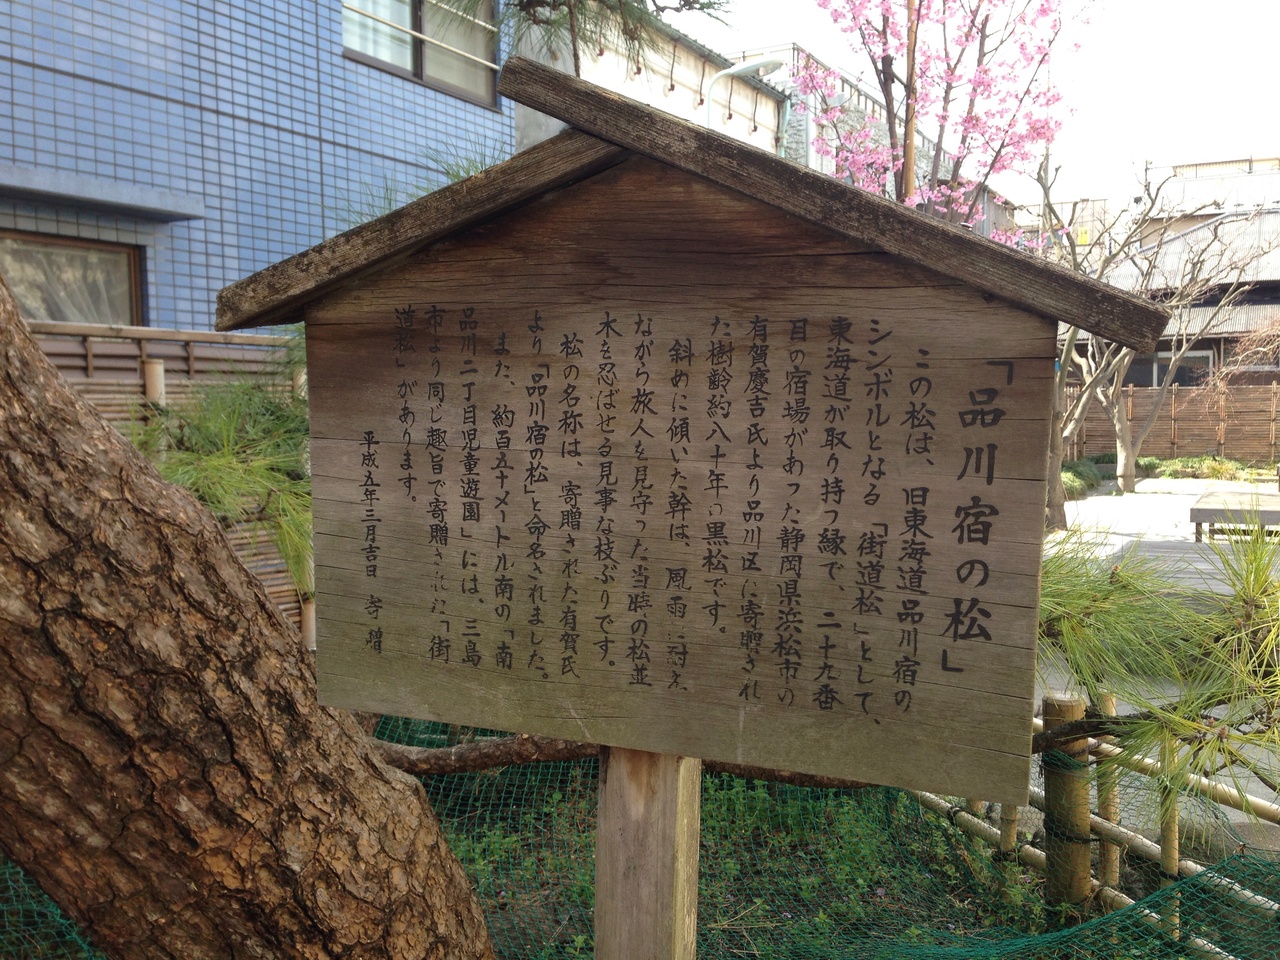 「品川宿の松」
この松は、旧東海道品川宿の
シンボルとなる「街道松」として、
東海道が取り持つ縁で、二十九番
目の宿場があった静岡県浜松市の
有賀慶吉氏より品川区に寄贈され
た樹齢約八十年の黒松です。
斜めに傾いた幹は、風雨に耐え
ながら旅人を見守った当時の松並
木を忍ばせる見事な枝ぶりです。
松の名称は、寄贈された有賀氏
より「品川宿の松」と命名されました。
また、約百五十メートル南の「南
品川二丁目児童遊園」には、三島
市より同じ趣旨で寄贈された「街
道松」があります。
平成五年三月吉日 寄贈